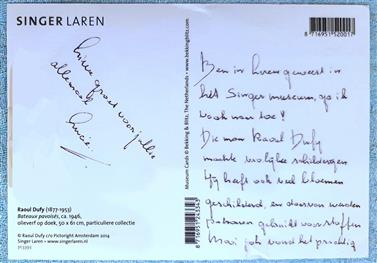 SINGER LAREN
lieve groet voor jullie
allemaal
Raoul Dufy (1877-1953)
Bateaux pavoisés, ca. 1946,
olieverf op doek, 50 x 61 cm, particuliere collectie
© Raoul Dufy c/o Pictoright Amsterdam 2014
Singer Laren • www.singerlaren.nl
Museum Cards © Bekking & Blitz, The Netherlands • www.bekkingblitz.com
8 716951 520017
Ben in geweest in
het Singer museum, ga ik
vaak naar toe!
Die man Raoul Dufy
maakte vrolijke schilderijen
Hij heeft ook veel bloemen
geschilderd, en daarvan werden
patronen gebruikt voor stoffen
vond het prachtig